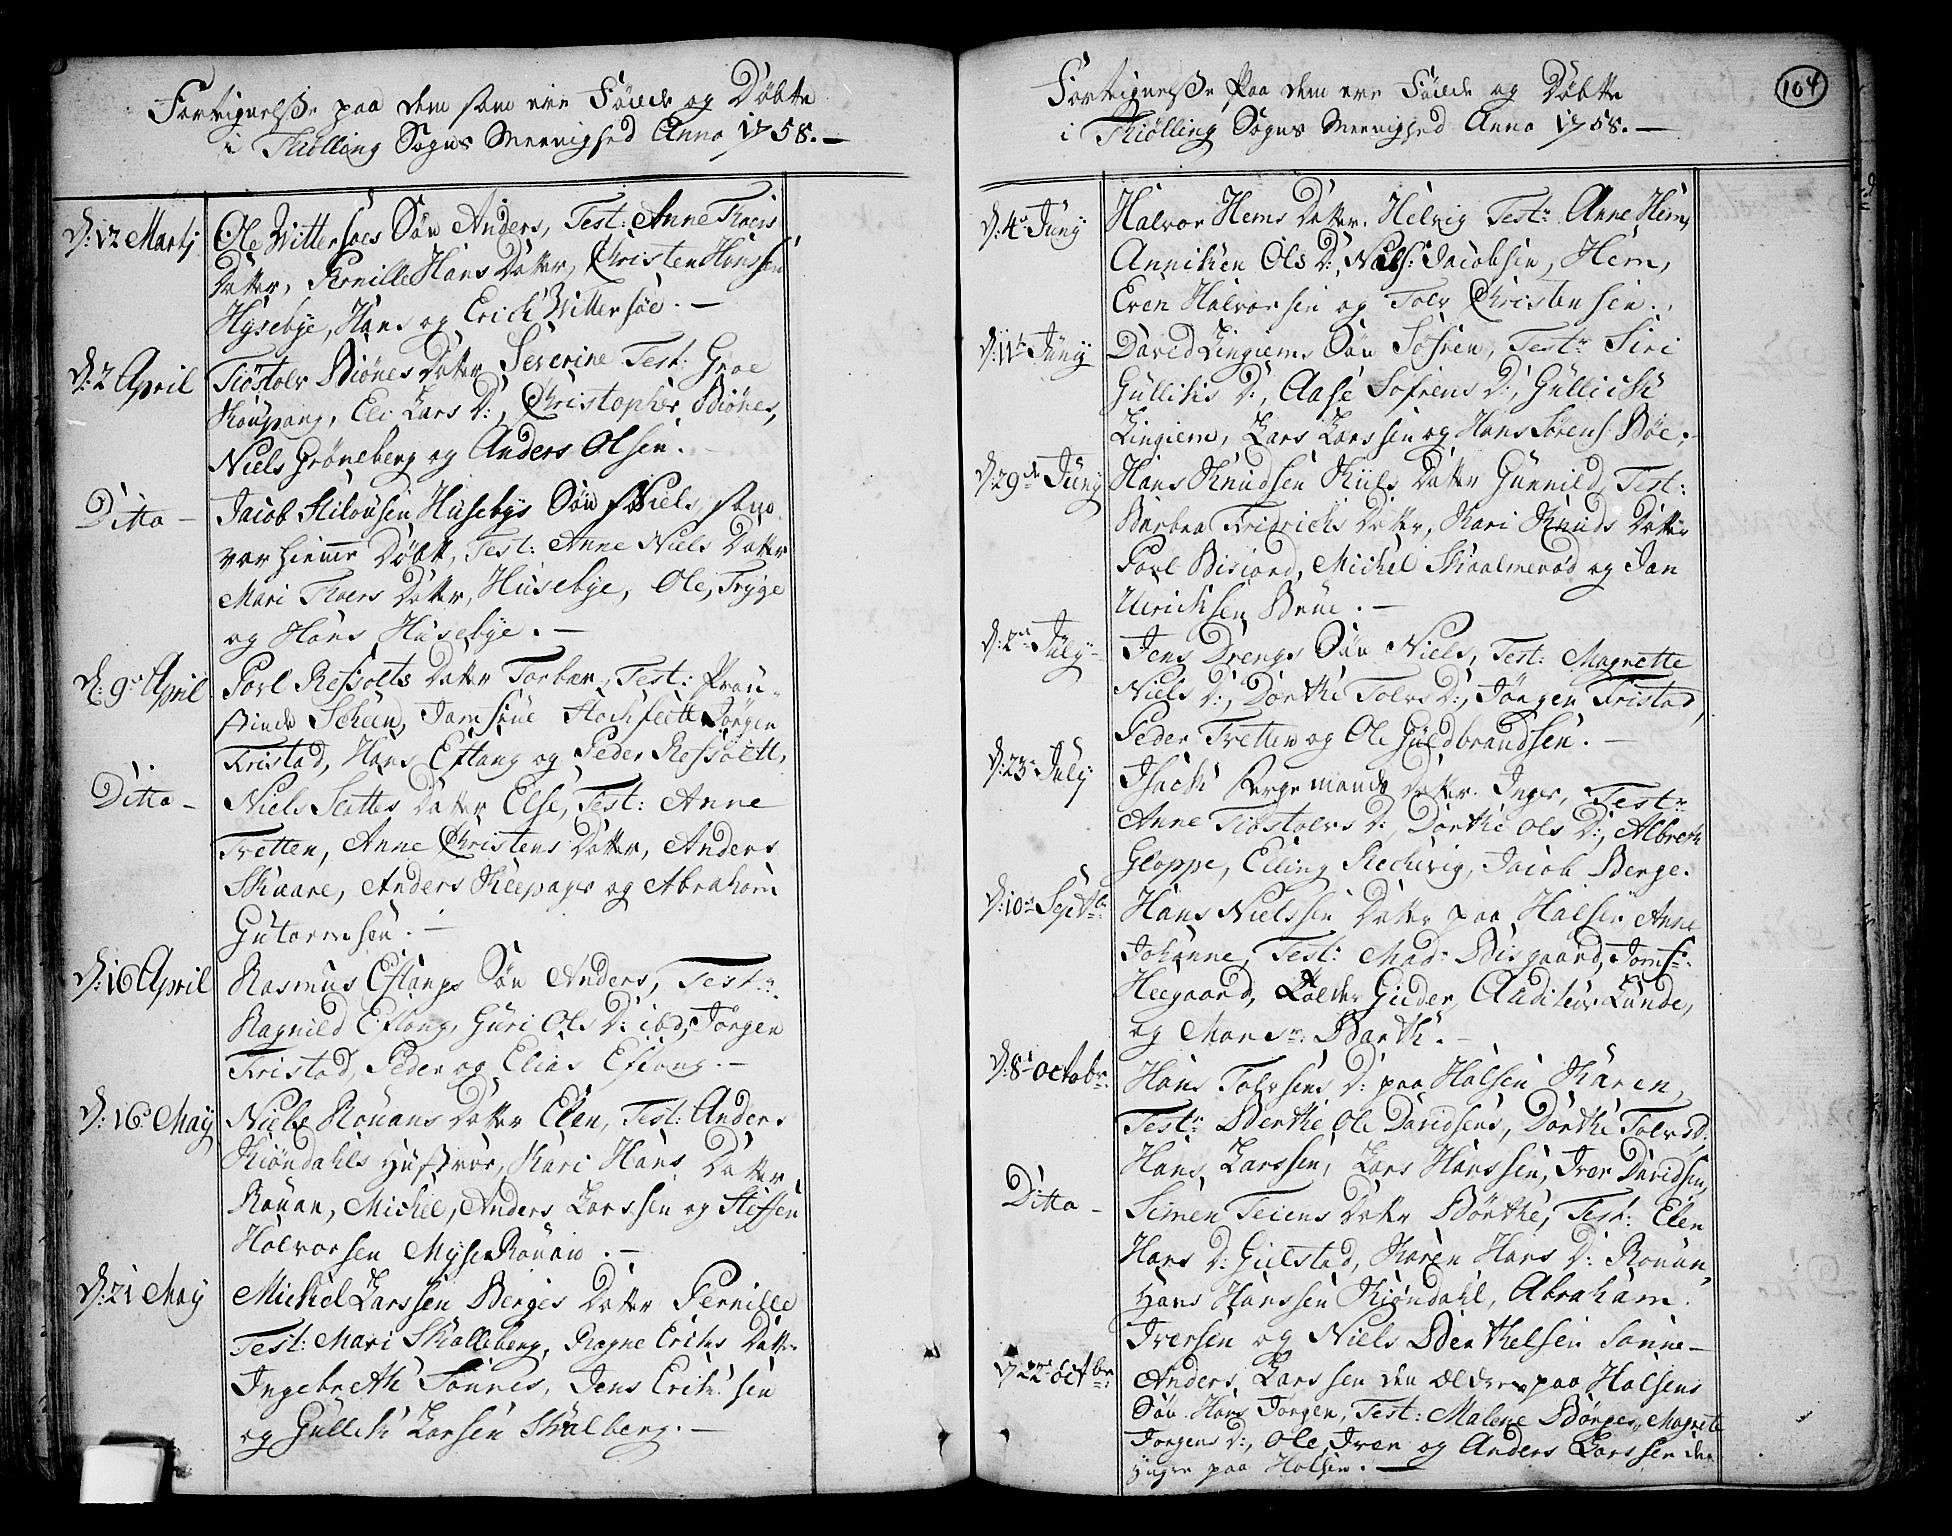 Fortegnelsse paa dem som ere Födde og Döbte
i Thiölling Sogns Meenighed Anno 1758. —
D: 12 Martj
Ole Wittersöes Sön Anders, Test: Anne Thoers
Datter, Pernille Hans Datter, Christen Hanssen
Hysebye, Hans og Erich Wittersöe. —
D: 2 April
Tiöstolv Biönes Datter Severine Test: Groe
Kaupang, Eli Lars D:, Christopher Biönes,
Niels Gröneberg og Anders Olsen.
Ditto —
Jacob Husebys Sön Niels, som
var hiemme Döbt, Test: Anne Niels Datter
Mari Thoers Datter, Husebye, Ole, Tryge
og Hans Husebye. —
D: 9 April
Povl Datter Torbor, Test:
Scheen, Jomfrue Jörgen
Tristad, Hans Eftang og Peder
Ditto —
Niels Datter Else, Test: Anne
Tretten, Anne Christens Datter, Anders
Skaare, Anders og Abraham
Gutormsen. —
D: 16 April
Rasmus Eftangs Sön Anders, Test:
Ragnild Eftang, Guri Ols D: ibd, Jörgen
Tristad, Peder og Elias Eftang. —
D: 16 May
Niels Rouans Datter Elen, Test: Anders
Kiöndahls Hustroe, Kari Hans Datter
Rouan, Michel, Anders Larssen og Steffen
Halvorsen Rouan. —
D: 21 May
Michel Larssen Berges Datter Pernille
Test: Mari Skalleberg, Ragne Erichs Datter
Ingebreth Sönnes, Jens Erichsen
og Gullich Larsen Skalberg. —
104
Fortegnelsse Paa dem ere Födde og Döbte
i Thiölling Sogns Meenighed Anno 1758. —
D: 4 Juny
Halvor Hems Datter Helvig Test: Anne Hem,
Anniken Ols D:, Niels Jacobsen, Hem,
Even Halvorsen og Tolv Christensen.
D: 11 Juny
David Lingiems Sön Sofren, Test: Siri
Gullichs D:, Aase Sofrens D:, Gullich
Lingiem, Lars Larssen og Hans Sörens: Böe.
D 29 Juny
Hans Knudsen Datter Gunnild, Test:
Barbra Fridrichs Datter, Kari Knuds Datter
Povl Bisiord, Michel Skaalmeröd og Jan
Ulrichsen Brue. —
D: 2 July
Jens Drengs Sön Niels, Test: Magrette
Niels D:, Dorthe Tolvs D:, Jörgen Tristad,
Peder Tretten og Ole Guldbrandsen. —
D: 23 July
Isach Bergemands Datter Inger, Test:
Anne Tiöstolvs D:, Dorthe Ols D:, Albreth
Gloppe, Elling Rechevig, Jacob Berge.
D: 10 Septb:
Hans Nielssen Datter paa Halsen Anne
Johanne, Test: Mad: Bisgaard, Jomf:
Heegaard, Auditeur Lunde,
og Mons: Barth. —
D: 8 Octobr:
Hans Tolvsens D: paa Halsen Karen,
Test: Berthe Ole Davidsens, Dorthe Tolvs D:
Hans Larssen, Lars Hanssen, Iver Davidsen,
Ditto —
Simen Teiens Datter Börthe, Test: Elen
Hans D: Gielstad, Karen Hans D: Rouan,
Hans Hanssen Kiöndahl, Abraham
Iversen og Niels Berthelsen Sönne —
D 22 Octbr:
Anders Larssen den Ældre paa Halsens
Sön Hans Jörgen, Test: Malene Börges, Magrete
Jörgens D:, Ole, Iver og Anders Larssen den
yngre paa Halsen. —